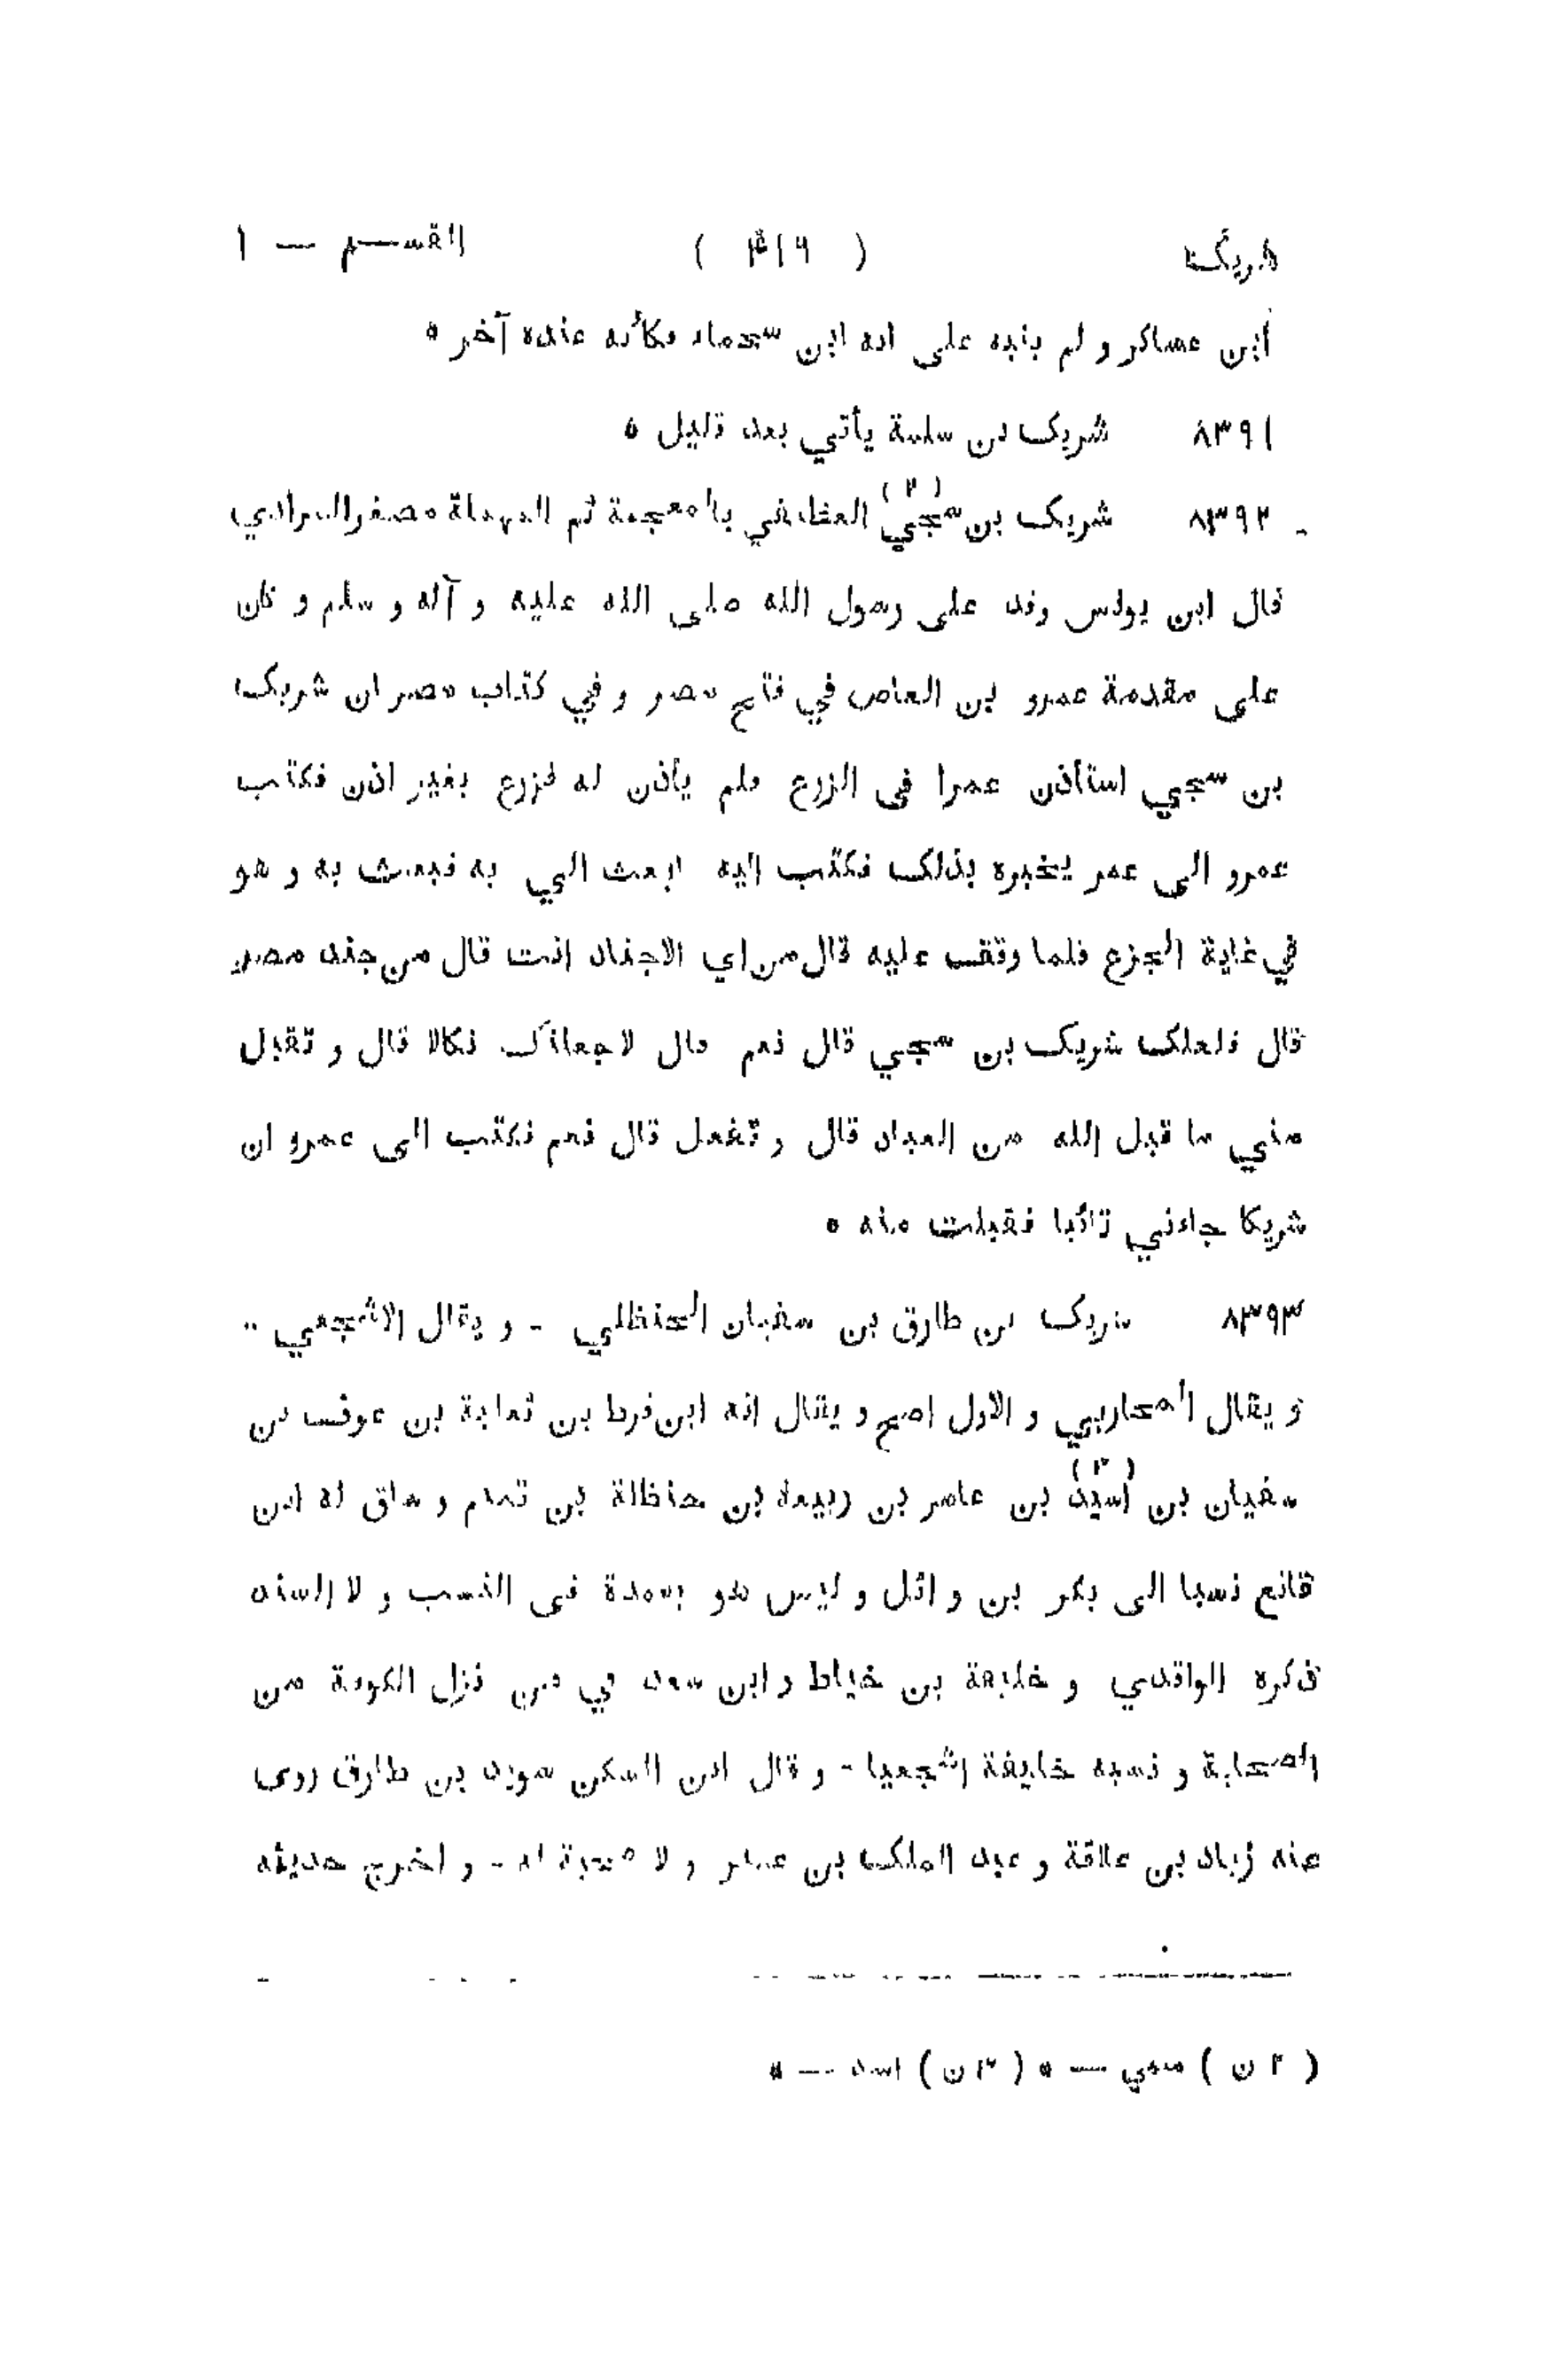 شريك ( ٤١٦ ) القسم — ١
ابن عساكر و لم ينبه على انه ابن سحماء فكأنه عنده آخر ٥
٨٣٩١ شريك بن سلمة يأتي بعد قليل ٥
٨٣٩٢ شريك بن سمي (٢) الغطيفي بالمعجمة ثم المهملة مصغر المرادي
قال ابن يونس وفد على رسول الله صلى الله عليه و آله و سلم و كان
على مقدمة عمرو بن العاص في فتح مصر و في كتاب مصر ان شريك
بن سمي استأذن عمرا فى الزرع فلم يأذن له فزرع بغير اذن فكتب
عمرو الى عمر يخبره بذلك فكتب اليه ابعث الي به فبعث به و هو
في غاية الجزع فلما وقف عليه قال من اي الاجناد انت قال من جند مصر
قال فلعلك شريك بن سمي قال نعم قال لاجعلنك نكالا قال و تقبل
مني ما قبل الله من العباد قال و تفعل قال نعم فكتب الى عمرو ان
شريكا جاءني تائبا فقبلت منه ٥
٨٣٩٣ شريك بن طارق بن سفيان الحنظلي - و يقال الاشجعي -
و يقال المحاربي و الاول اصح و يقال انه ابن قرط بن ثعلبة بن عوف بن
سفيان بن اسيد (٣) بن عامر بن ربيعة بن حنظلة بن تميم و ساق له ابن
قانع نسبا الى بكر بن وائل و ليس هو بعمدة فى النسب و لا السند
ذكره الواقدي و خليفة بن خياط و ابن سعد في من نزل الكوفة من
الصحابة و نسبه خليفة اشجعيا - و قال ابن السكن سويد بن طارق روى
عنه زياد بن علاقة و عبد الملك بن عمير و لا صحبة له - و اخرج حديثه
( ٢ ن ) — ٥ ( ٣ ن ) اسد — ٥